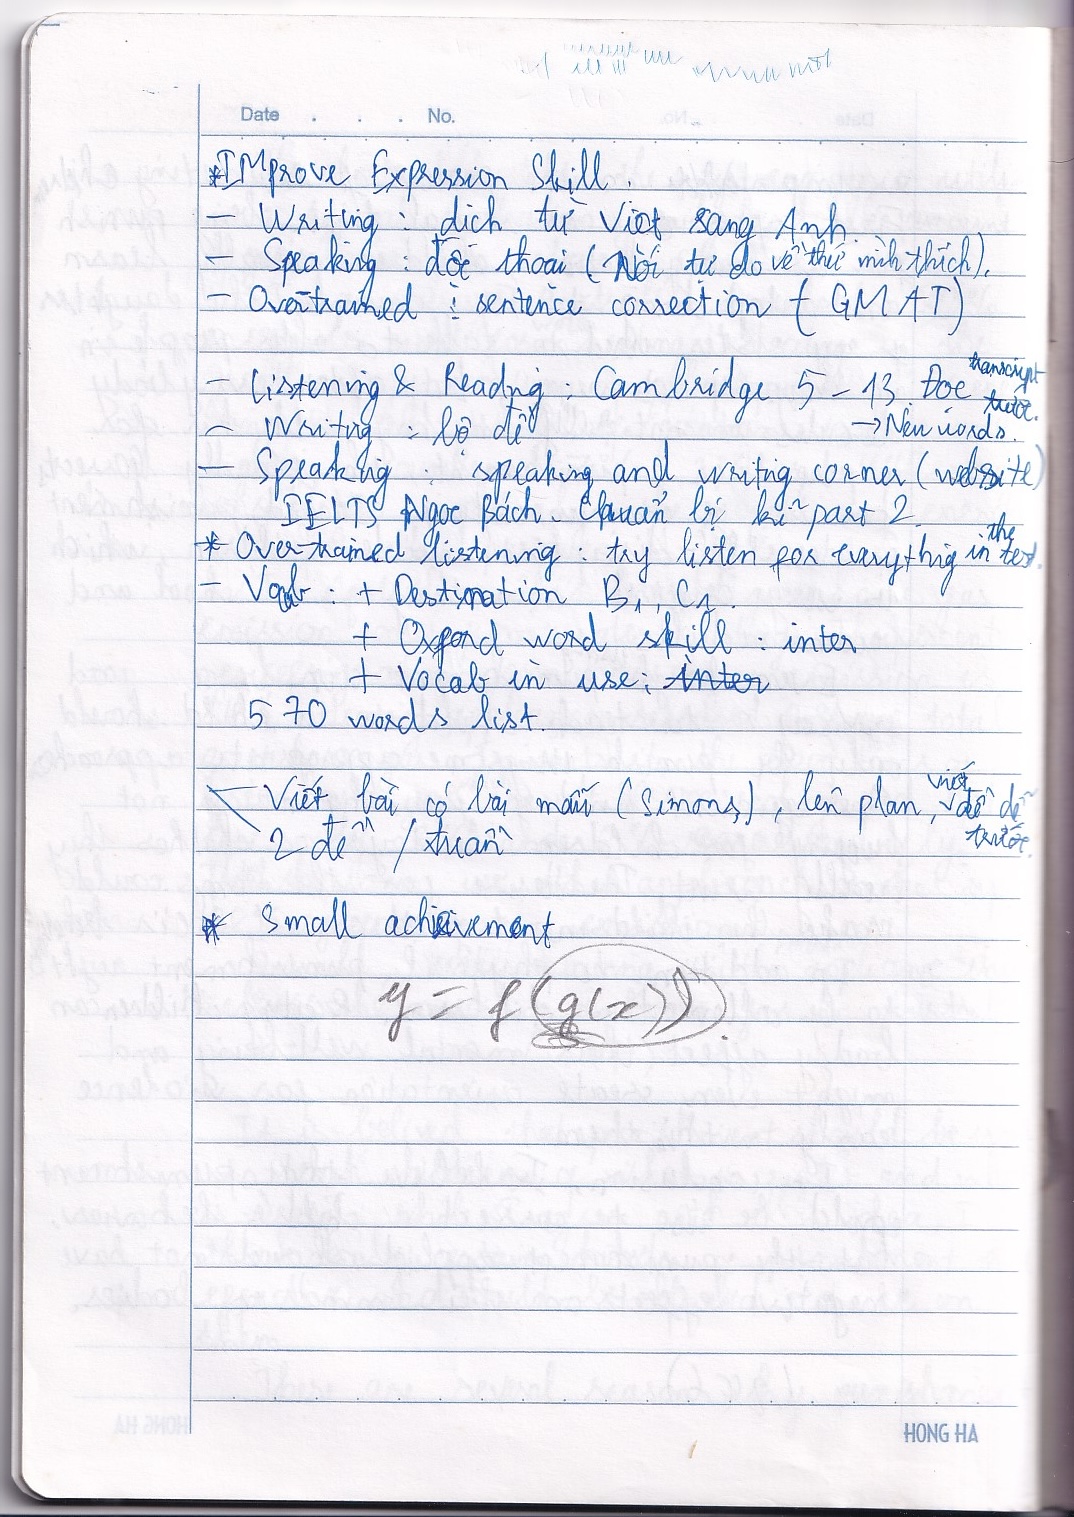 Date . . . No.
*IMprove Expression Skill.
- Writing : dịch từ Việt sang Anh.
- Speaking : độc thoại (Nói tự do về thứ mình thích).
- Overtrained : sentence correction (GMAT)
- Listening & Reading : Cambridge 5 - 13 Đọc transcript trước.
→ New words.
- Writing : bộ đề
- Speaking : speaking and writing corner (website)
IELTS Ngọc Bách. Chuẩn bị kĩ part 2
* Overtrained listening : try listen for everything in the test.
- Vocab : + Destination B1, C1.
+ Oxford word skill : inter
+ Vocab in use : inter
570 words list.
Viết bài có bài mẫu (Simons), lên plan, viết đề dễ trước.
2 đề / tuần
* Small achievement
y = f(g(x)).
HONG HA